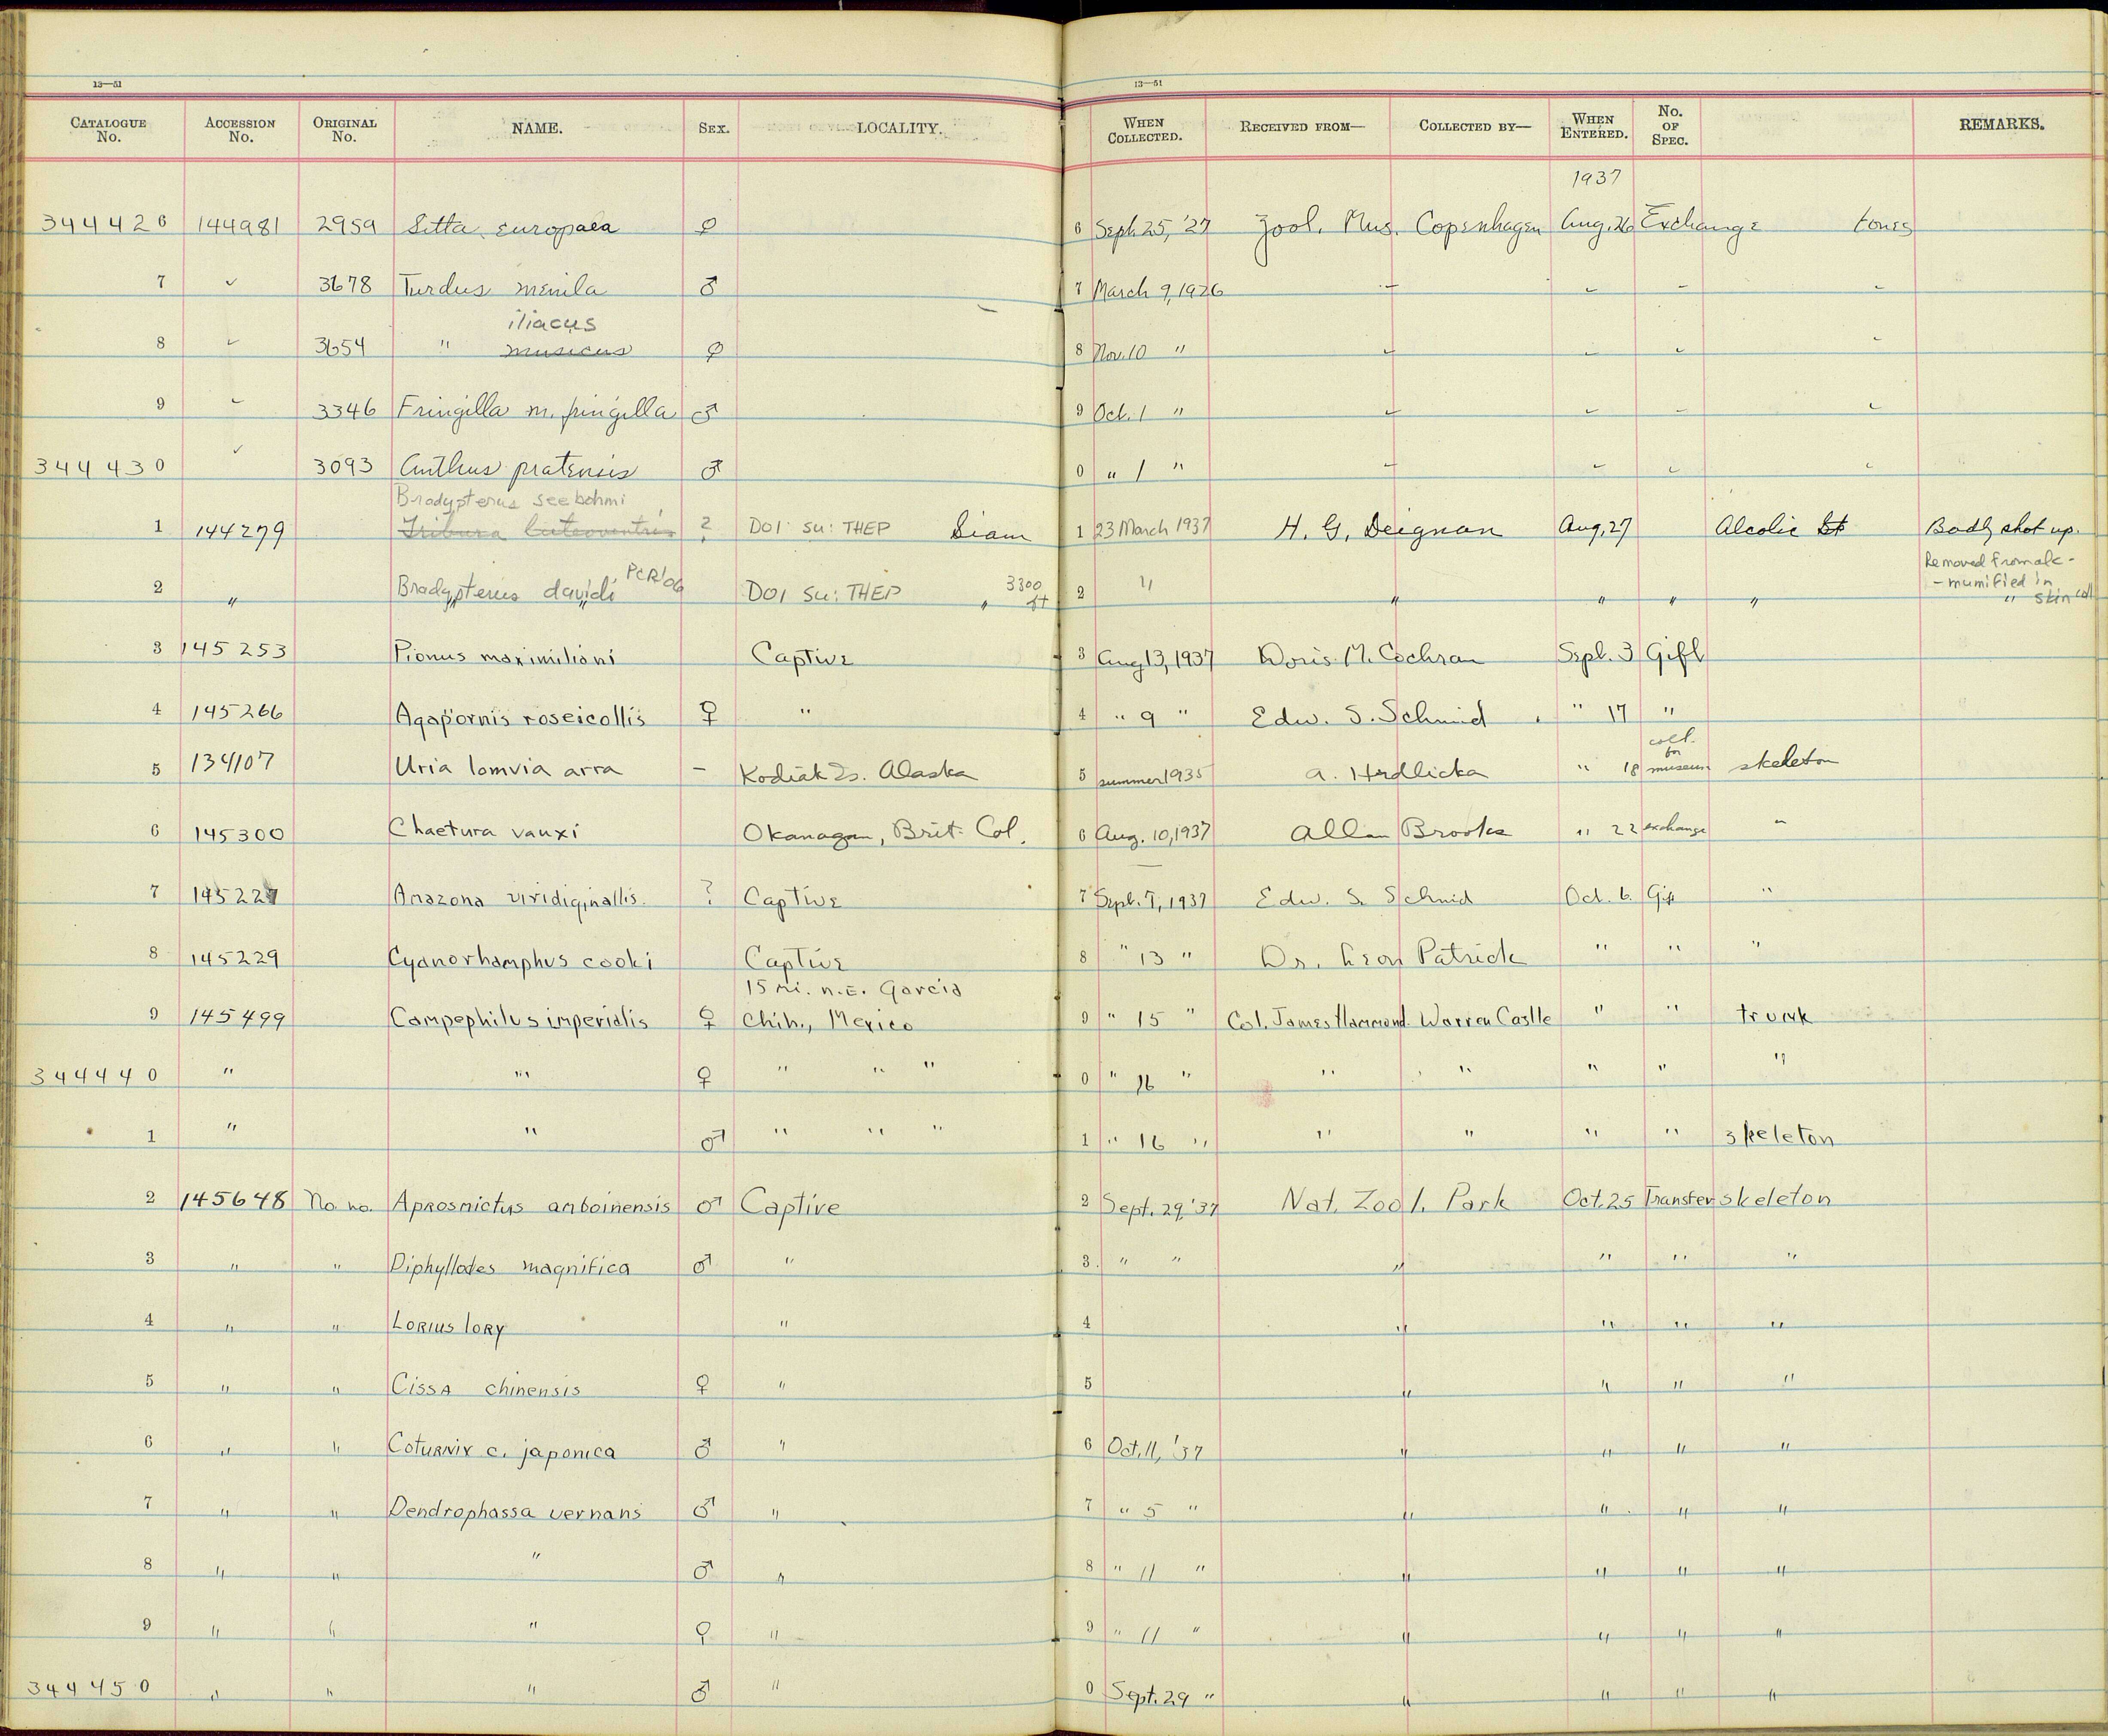 13—51 13—51
CATALOGUE No. ACCESSION No. ORIGINAL No. NAME. SEX. LOCALITY. WHEN COLLECTED. RECEIVED FROM— COLLECTED BY— WHEN ENTERED. No. OF SPEC. REMARKS.
1937
344426 144981 2959 Sitta europaea ♀ 6 Sept. 25, '27 Zool. Mus. Copenhagen Aug. 26 Exchange
7 3678 Turdus merula ♂ 7 March 9, 1926
iliacus
8 3654 " musicus ♀ 8 Nov. 10 "
9 3346 Fringilla m. fringilla ♂ 9 Oct. 1 "
344430 3093 Anthus pratensis ♂ 0 " 1 "
Bradypterus seebohmi
1 144279 Tribura luteoventris ? DOI SU: THEP Siam 1 23 March 1937 H. G. Deignan Aug. 27 Alcolic Badly shot up.
Removed from alc -
2 " Bradypterus davidi PCR'06 DOI SU: THEP " 3300 ft 2 " " " " " - mumified in
" skin coll
3 145253 Pionus maximiliani Captive 3 Aug 13, 1937 Doris M. Cochran Sept. 3 Gift
4 145266 Agapornis roseicollis ♀ " 4 " 9 " Edw. S. Schmid " 17 "
5 134107 Uria lomvia arra – Kodiak Is. Alaska 5 summer 1935 A. Hrdlicka " 18 coll. for museum skeleton
6 145300 Chaetura vauxi Okanagan, Brit. Col. 6 Aug. 10, 1937 Allan Brooks " 22 exchange "
7 145227 Amazona viridiginallis ? Captive 7 Sept. 7, 1937 Edw. S. Schmid Oct. 6. Gift "
8 145229 Cyanorhamphus cooki Captive 8 " 13 " Dr. Leon Patrick " " "
15 mi. n.E. Garcia
9 145499 Campephilus imperialis ♀ Chih., Mexico 9 " 15 " Col. James Hammond Warren Castle " " trunk
344440 " " ♀ " " " 0 " 16 " " " " " "
1 " " ♂ " " " 1 " 16 " " " " " skeleton
2 145648 No. no. Aprosmictus amboinensis ♂ Captive 2 Sept. 29, '37 Nat. Zool. Park Oct. 25 Transfer skeleton
3 " " Diphyllodes magnifica ♂ " 3 " " " " " "
4 " " Lorius lory " 4 " " " "
5 " " Cissa chinensis ♀ " 5 " " " "
6 " " Coturnix c. japonica ♂ " 6 Oct. 11, '37 " " " "
7 " " Dendrophassa vernans ♂ " 7 " 5 " " " " "
8 " " " ♂ " 8 " 11 " " " " "
9 " " " ♀ " 9 " 11 " " " " "
344450 " " " ♂ " 0 Sept. 29 " " " " "